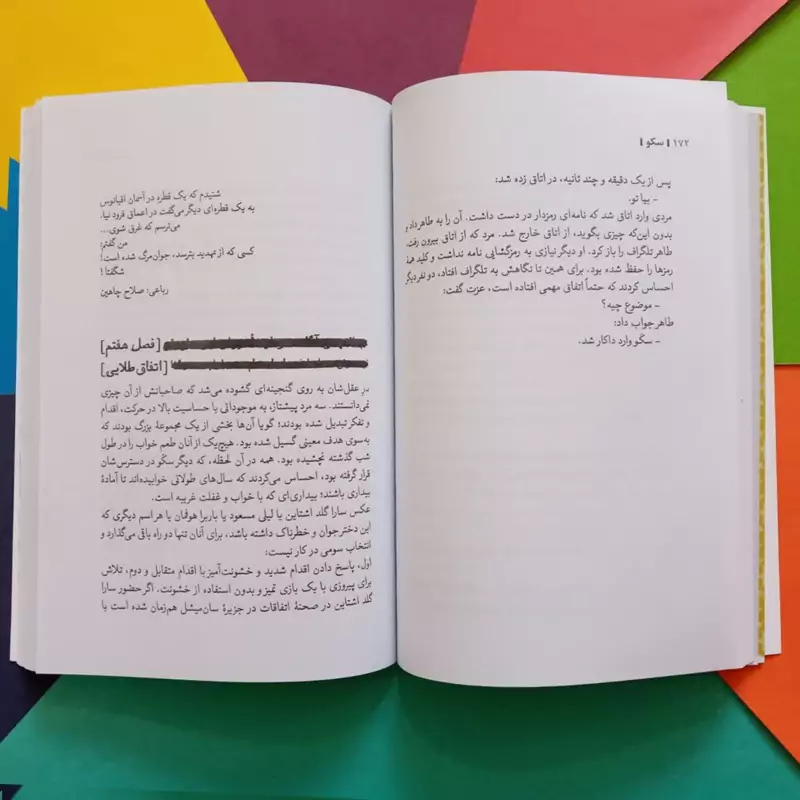 ۱۷۲ | سکو |
پس از یک دقیقه و چند ثانیه، در اتاق زده شد:
- بیا تو.
مردی وارد اتاق شد که نامه‌ای رمزدار در دست داشت. آن را به طاهر داد و
بدون این‌که چیزی بگوید، از اتاق خارج شد. مرد که از اتاق بیرون رفت،
طاهر تلگراف را باز کرد. او دیگر نیازی به رمزگشایی نامه نداشت و کلید همهٔ
رمزها را حفظ شده بود. برای همین تا نگاهش به تلگراف افتاد، دو نفر دیگر
احساس کردند که حتماً اتفاقی مهمی افتاده است، عزت گفت:
- موضوع چیه؟
طاهر جواب داد:
- سکو وارد داکار شد.
شنیدم که یک قطره در آسمان اقیانوس
به یک قطره‌ای دیگر می‌گفت در اعماق فرود نیا،
می‌ترسم که غرق شوی...
من گفتم:
کسی که از تهدید بترسد، جوان‌مرگ شده است!
شگفتا!
رباعی: صلاح چاهین
[فصل هفتم]
[اتفاق طلایی]
در عقل‌شان به روی گنجینه‌ای گشوده می‌شد که صاحبانش از آن چیزی
نمی‌دانستند. سه مرد پیشتاز، به موجوداتی با حساسیت بالا در حرکت، اقدام
و تفکر تبدیل شده بودند؛ گویا آن‌ها بخشی از یک مجموعهٔ بزرگ بودند که
به‌سوی هدف معینی گسیل شده بود. هیچ‌یک از آنان طعم خواب را در طول
شب گذشته نچشیده بود. همه در آن لحظه، که دیگر سکّو در دسترس‌شان
قرار گرفته بود، احساس می‌کردند که سال‌های طولانی خوابیده‌اند تا آمادهٔ
بیداری باشند؛ بیداری‌ای که با خواب و غفلت غریبه است.
عکس سارا گلد اشتاین یا لیلی مسعود یا باربرا هوفمان یا هر اسم دیگری که
این دختر جوان و خطرناک داشته باشد، برای آنان تنها دو راه باقی می‌گذارد و
انتخاب سومی در کار نیست:
اول، پاسخ دادن اقدام شدید و خشونت‌آمیز با اقدام متقابل و دوم، تلاش
برای پیروزی با یک بازی تمیز و بدون استفاده از خشونت. اگر حضور سارا
گلد اشتاین در صحنهٔ اتفاقات در جزیرهٔ سان‌میشل هم‌زمان شده است با